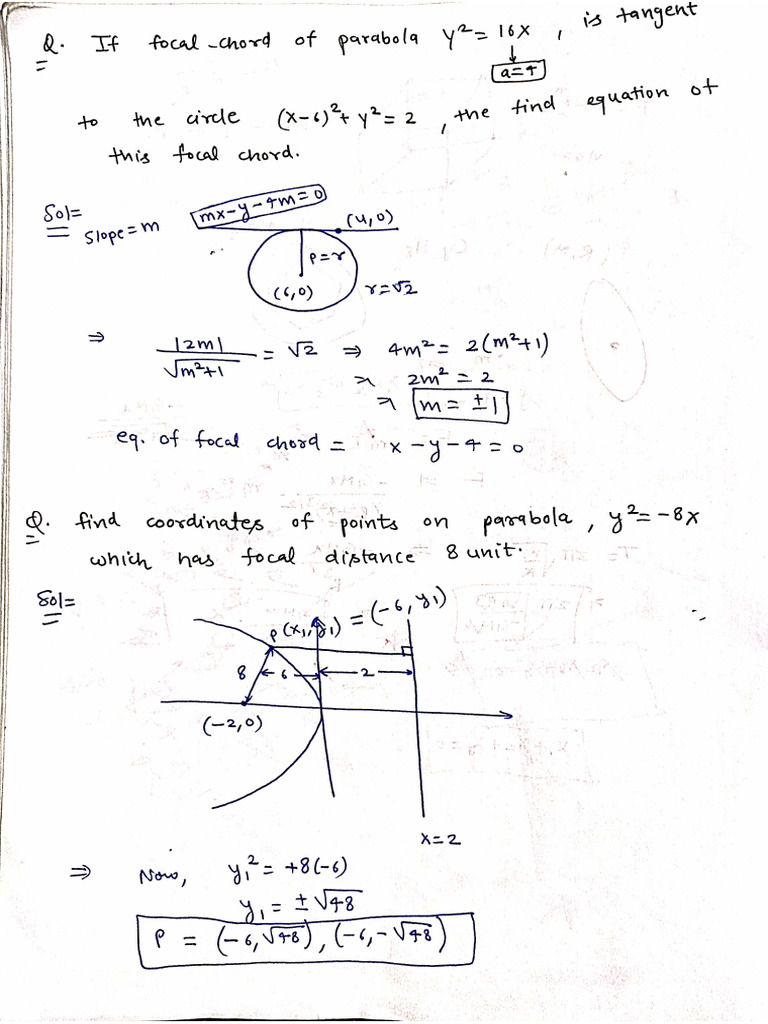 Q. If focal-chord of parabola y² = 16x, is tangent
a=4
to the circle (x-6)² + y² = 2, the find equation of
this focal chord.
Sol=
slope = m
mx-y-4m=0
(4,0)
P=r
(6,0)
r=√2
⇒ |2m| / √m²+1 = √2 ⇒ 4m² = 2(m²+1)
⇒ 2m² = 2
⇒ m = ±1
eq. of focal chord = x-y-4=0
Q. find coordinates of points on parabola, y²=-8x
which has focal distance 8 unit.
Sol=
P(x₁,y₁) = (-6,y₁)
8
6
2
(-2,0)
x=2
⇒ Now, y₁² = +8(-6)
y₁ = ±√48
P = (-6,√48), (-6,-√48)